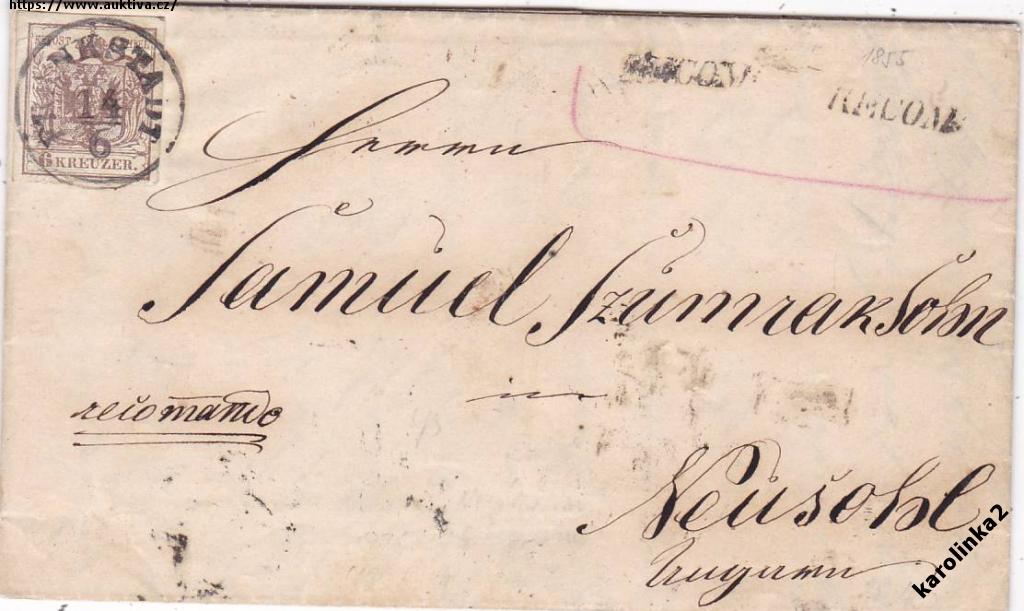 https://www.auktiva.cz/
14
6
6 KREUZER.
RECOM
RECOM
1855
Herrn
Samuel Szumrak Sohn
recomando
in
Neusohl
Ungarn
karolinka2